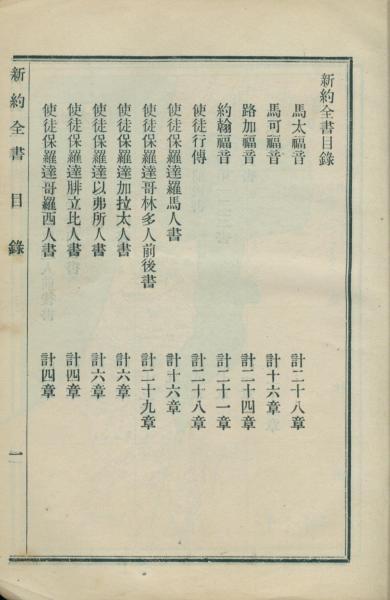 新約全書目錄
馬太福音 計二十八章
馬可福音 計十六章
路加福音 計二十四章
約翰福音 計二十一章
使徒行傳 計二十八章
使徒保羅達羅馬人書 計十六章
使徒保羅達哥林多人前後書 計二十九章
使徒保羅達加拉太人書 計六章
使徒保羅達以弗所人書 計六章
使徒保羅達腓立比人書 計四章
使徒保羅達哥羅西人書 計四章
新約全書 目錄 一